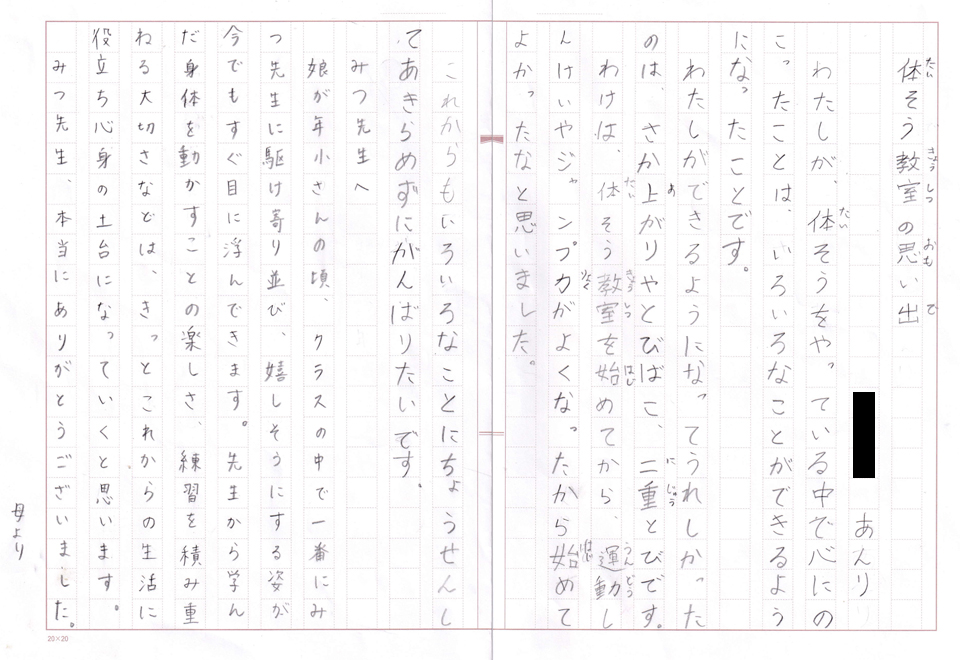 体そう教室の思い出
あんり
わたしが、体そうをやっている中で心にの
こったことは、いろいろなことができるよう
になったことです。
わたしができるようになってうれしかった
のは、さか上がりやとびばこ、二重とびです。
わけは、体そう教室を始めてから、運動し
んけいやジャンプ力がよくなったから始めて
よかったなと思いました。
これからもいろいろなことにちょうせんし
てあきらめずにがんばりたいです。
みつ先生へ
娘が年小さんの頃、クラスの中で一番にみ
つ先生に駆け寄り並び、嬉しそうにする姿が
今でもすぐ目に浮んできます。先生から学ん
だ身体を動かすことの楽しさ、練習を積み重
ねる大切さなどは、きっとこれからの生活に
役立ち心身の土台になっていくと思います。
みつ先生、本当にありがとうございました。
母より
20×20